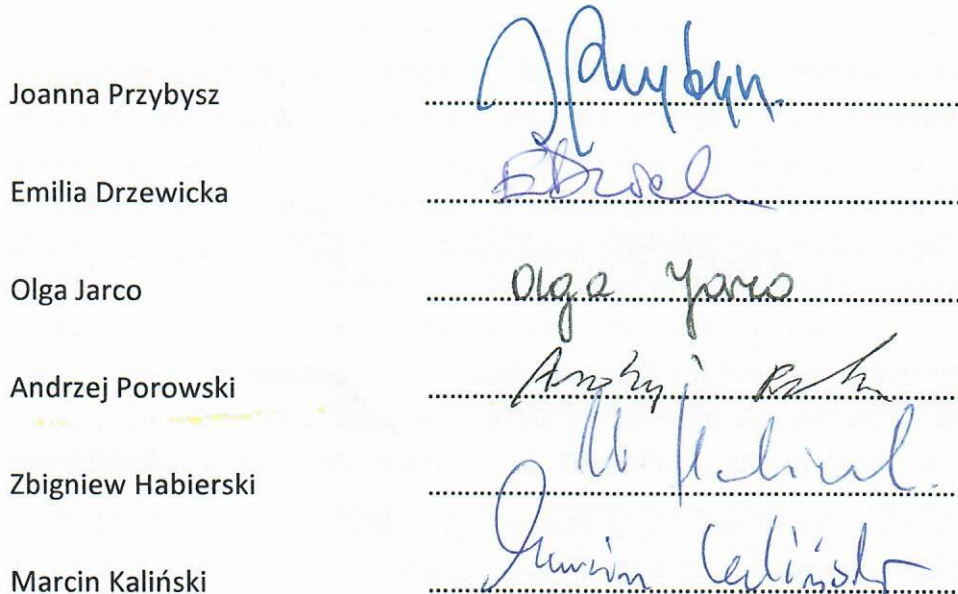 Joanna Przybysz
Emilia Drzewicka
Olga Jarco Olga Jarco
Andrzej Porowski Andrzej
Zbigniew Habierski
Marcin Kaliński Marcin Kaliński